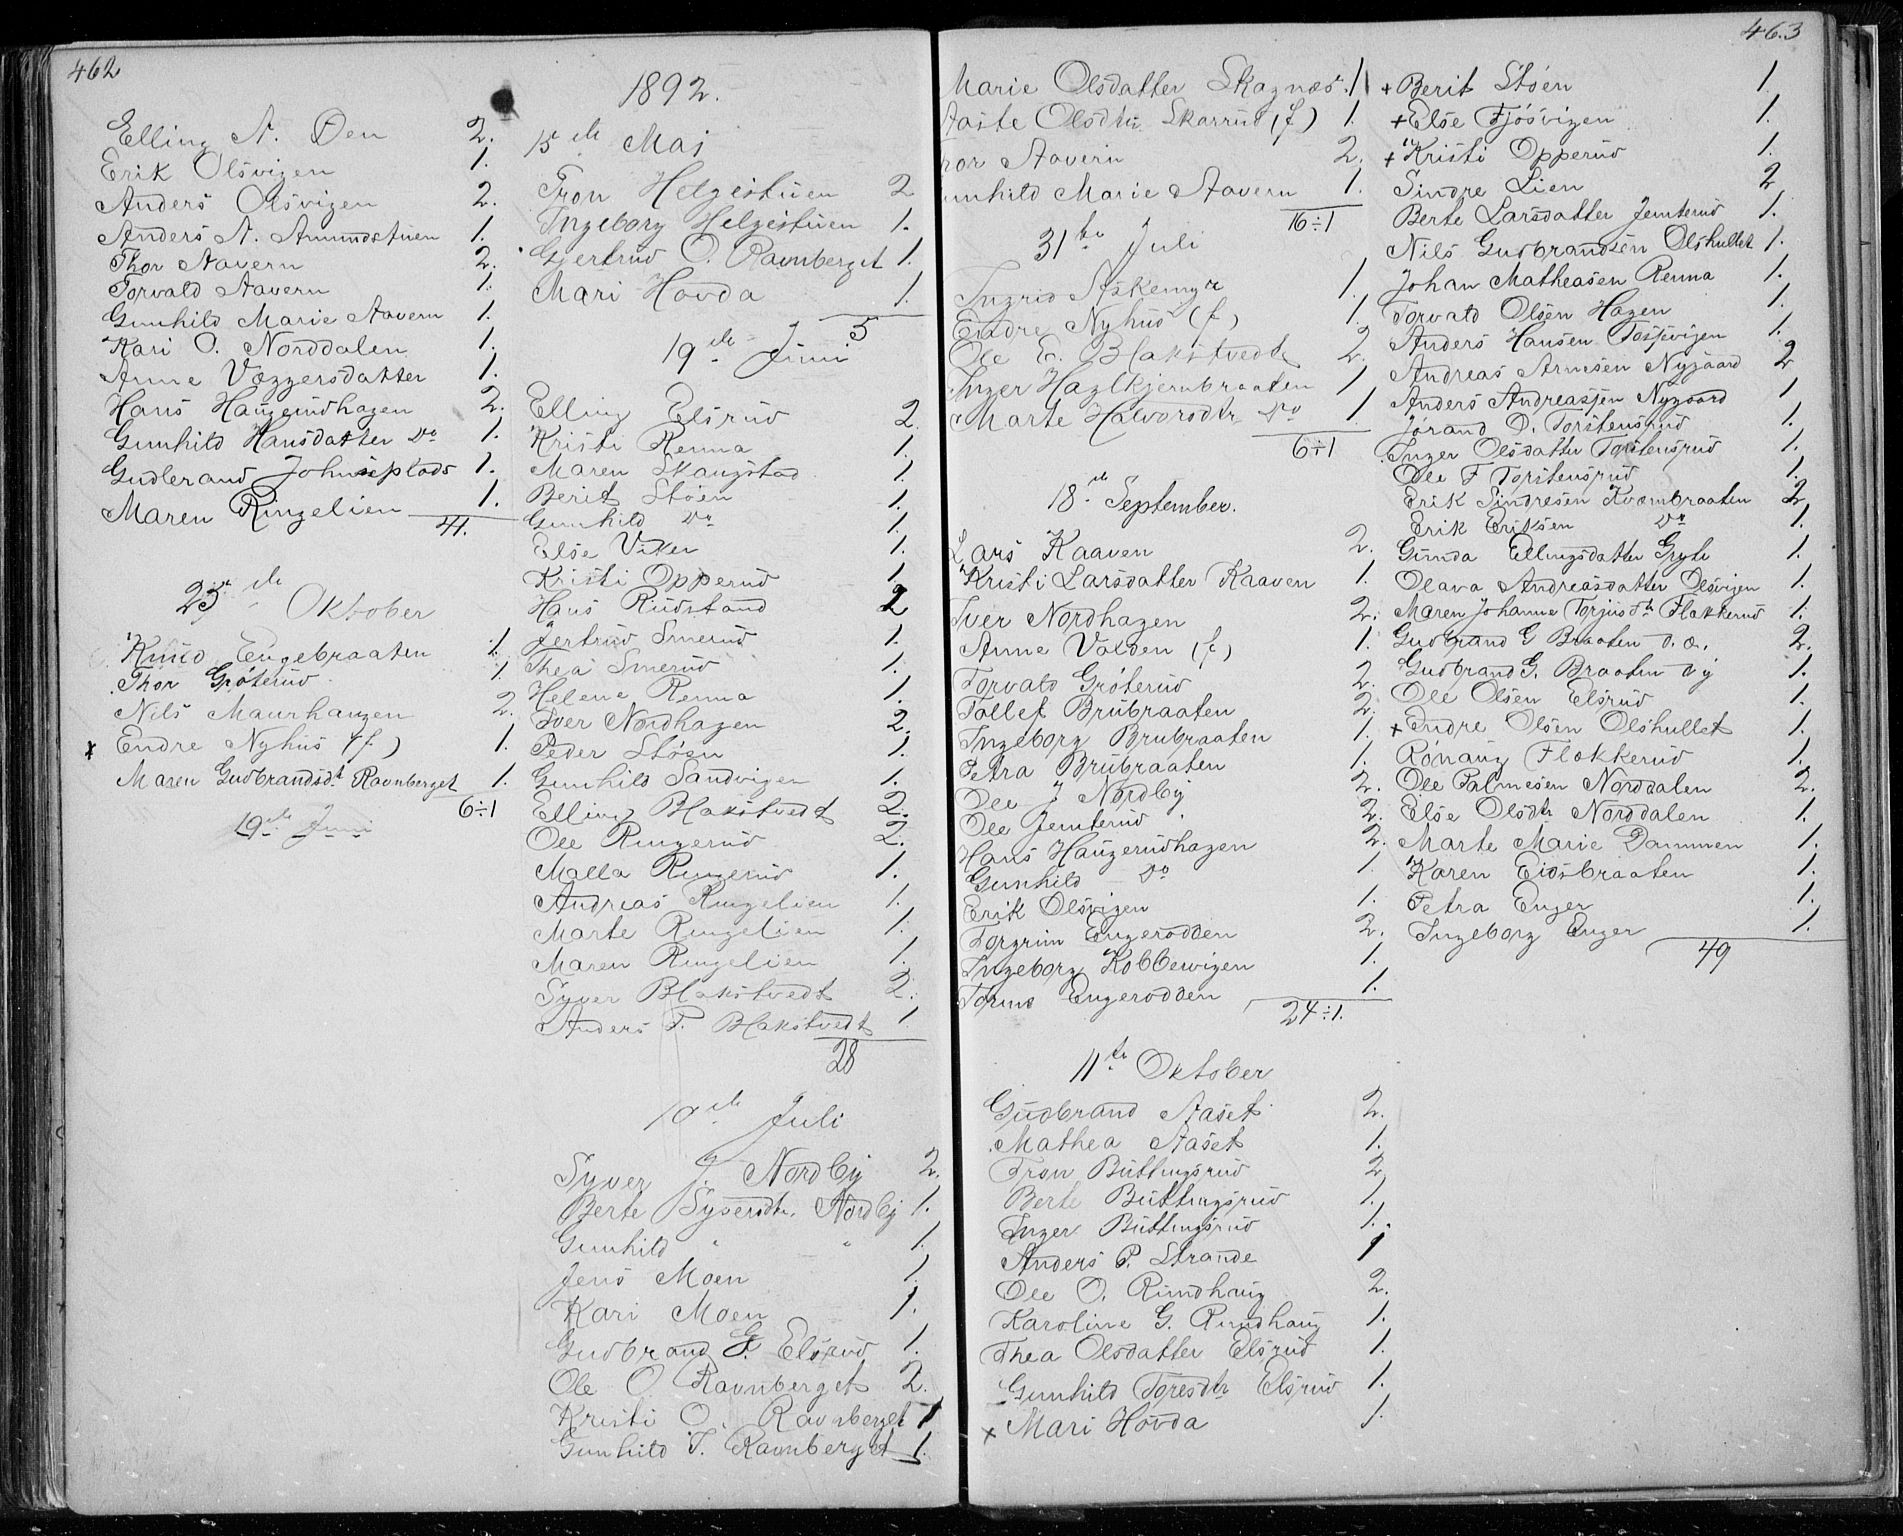 462
Elling A. Øen 2.
Erik Olsvigen 1.
Anders Olsvigen 2.
Anders A. Amundstuen 1.
Thor Aavern 2.
Torvald Aavern 1.
Gunhild Marie Aavern 1.
Kari O. Norddalen 1.
Anne Væggersdatter 1.
Hans Haugerudhagen 2.
Gunhild Hansdatter do 1.
Gudbrand Johnsplads 1.
Maren Ringelien 1.
41.
23de Oktober
Knud Engebraaten 1.
Thor Grøterud 1.
Nils Maurhaugen 2.
x Endre Nyhus (f.) 1.
Maren Gudbrandsdt Ravnberget 1.
6÷1
19de Juni
1892.
15de Mai
Tron Helgestuen 2
Ingeborg Helgestuen 1.
Gjertrud O. Ravnberget 1.
Mari Hovda 1.
5
19de Juni
Elling Elsrud 2.
Kristi Renna 1.
Maren Skaugstad 1.
Berit Støen 1.
Gunhild do 1.
Else Viker 1.
Kristi Opperud 1.
Hans Rudstand 2
Gjertrud Smerud 1.
Thea Smerud 1.
Helene Renna 1.
Iver Nordhagen 2.
Peder Støen 1.
Gunhild Sandvigen 1.
Elling Blakstvedt 2.
Ole Ringerud 2.
Malla Ringerud 1.
Andreas Ringelien 1.
Marte Ringelien 1.
Maren Ringelien 1.
Syver Blakstvedt 2.
Anders P. Blakstvedt 1.
28
10de Juli
Syver J. Nordby 2.
Berte Syversdtr. Nordby 1.
Gunhild " " 1.
Jens Moen 1.
Kari Moen 1.
Gudbrand G. Elsrud 1.
Ole O. Ravnberget 2.
Kristi O. Ravnberget 1
Gunhild T. Ravnberget 1.
463
Marie Olsdatter Skagnæs. 1
Aaste Olsdtr. Skarrud (f.) 1.
Thor Aavern 2.
Gunhild Marie Aavern 1.
16÷1
31te Juli
Ingrid Askemyr 1.
Endre Nyhus (f.) 1.
Ole E. Blakstvedt 2.
Inger Haglkjernbraaten 1
Marte Halvorsdtr do 1.
6÷1
18de September.
Lars Kaaven 2.
Kristi Larsdatter Kaaven 1.
Iver Nordhagen 2.
Anne Valden (f.) 1.
Torvald Grøterud 2
Tollef Brubraaten 2.
Ingeborg Brubraaten 1.
Petra Brubraaten 1.
Ole J Nordby 2.
Ole Jemterud 2.
Hans Haugerudhagen 2.
Gunhild do 1.
Erik Olsvigen 1.
Torgrim Engerodden 2.
Ingeborg Kobbervigen 1.
Tormo Engerodden 1.
24÷1.
11te Oktober
Gudbrand Aaset 2.
Mathea Aaset 1.
Tron Buttingsrud 2
Berte Buttingsrud 1.
Inger Buttingsrud 1.
Anders P. Strande 1
Ole O. Rundhaug 2.
Karoline G. Rundhaug 1.
Thea Olsdatter Elsrud 1.
Gunhild Toresdtr Elsrud 1.
x Mari Hovda 1.
+ Berit Støen 1.
+ Else Fjøsvigen 1.
+ Kristi Opperud 1.
Sindre Lien 2
Berte Larsdatter Jemterud 1.
Nils Gudbrandsen Olshullet 1.
Johan Matheasen Renna 1.
Torvald Olsen Hagen 1.
Anders Hansen Fossvigen 1.
Andreas Arnesen Nygaard 2
Anders Andreassen Nygaard 1
Jørand O. Torstensrud 1.
Inger Olsdatter Torstensrud 1.
Ole F Torstensrud 1.
Erik Sindresen Kvambraaten 2
Erik Eriksen do 1.
Gunda Ellingsdatter Gryte 1.
Olava Andreasdatter Olsvigen 1.
Maren Johanne Torjusdtr Flakkerud 1.
Gudbrand G Braaten d.æ. 2.
Gudbrand G. Braaten d y 1.
Ole Olsen Elsrud 1.
+ Endre Olsen Olshullet 1.
Rønaug Flakkerud 1.
Ole Palmesen Norddalen 2.
Else Olsdtr Norddalen 1.
Marte Marie Dammen 1.
Karen Eidsbraaten 1.
Petra Enger 1.
Ingeborg Enger 1.
49